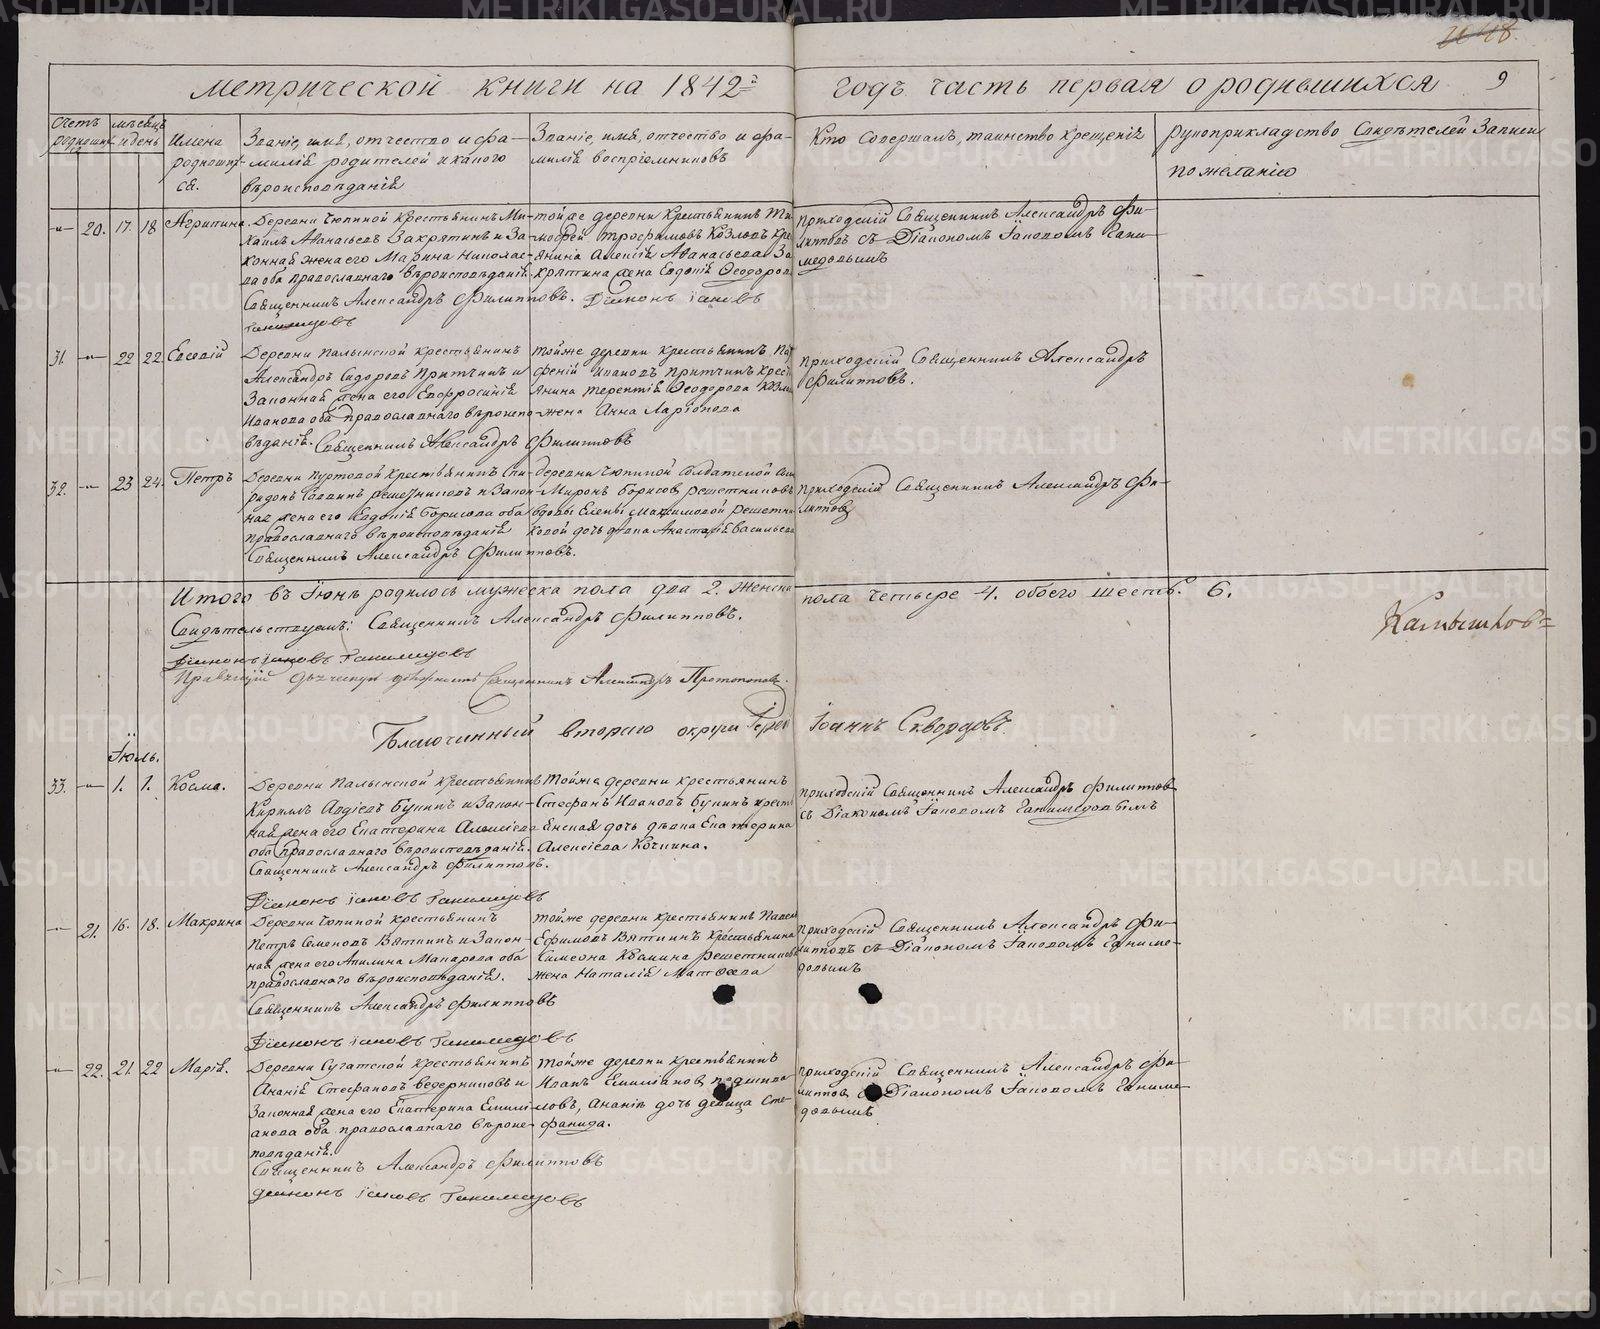 метрической книги на 1842й годъ часть первая о родившихся 9
Счетъ родившихся
мѣсяцъ и день
Имена родившихся.
Званіе, имя, отчество и фамилія родителей и какого вѣроисповѣданія
Званіе, имя, отчество и фамилія воспріемниковъ
Кто совершалъ, таинство крещенія
Рукоприкладство Свидѣтелей Записи по желанію
20. 17. 18 Агрипина
Деревни Чупиной Крестьянинъ Ми-
хаилъ Аѳанасьевъ Закрятинъ и За-
конная жена его Марина Николае-
ва оба православнаго вѣроисповѣданія
Священникъ Александръ Филипповъ. Діаконъ Іаковъ
Ганимедовъ
той же деревни Крестьянинъ Ти-
мофей Трофимовъ Козловъ кре-
янина Алексія Аѳанасьева За-
крятина жена Евдокія Ѳеодоров
приходскій Священникъ Александръ Фи-
липповъ съ Діакономъ Іаковомъ Гани-
медовымъ
31. 22 22 Евсевій
Деревни Палкинской крестьянинъ
Александръ Сидоровъ Притчинъ и
Законная жена его Евфросинія
Иванова оба православнаго вѣроиспо-
вѣданія. Священникъ Александръ Филипповъ
тойже деревни Крестьянинъ
феній Ивановъ Притчинъ крест
янина Терентія Ѳеодорова
жена Анна Ларіонова
приходскій Священникъ Александръ
Филипповъ.
32. 23 24. Петръ
Деревни крестьянинъ Спи-
ридонъ Решетниковъ и Закон-
ная жена его Евдокія Борисова оба
православнаго вѣроисповѣданія
Священникъ Александръ Филипповъ.
деревни Чупиной Солдатской сынъ
Миронъ Борисовъ Решетниковъ
вдовы Елены Максимовой Решетни-
ковой дочь дѣвка Анастасія Васильева
приходскій Священникъ Александръ Фи-
липповъ
Итого въ Іюнѣ родилось мужеска пола два 2. женска пола четыре 4. обоего шесть. 6.
Свидѣтельствуемъ: Священникъ Александръ Филипповъ.
Діаконъ Іаковъ Ганимедовъ
Правящій дьяческую должность Священникъ Александръ Протопоповъ.
Благочинный втораго округа Іерей Іоаннъ Скворцовъ
Іюль.
33. 1. 1. Косма.
Деревни Палкинской крестьянинъ
Кирилъ Авдіевъ Бунинъ и Закон-
ная жена его Екатерина Алексіева
оба православнаго вѣроисповѣданія.
Священникъ Александръ Филипповъ.
Діаконъ Іаковъ Ганимедовъ
Тойже деревни крестьянинъ
Стефанъ Ивановъ Бунинъ крестъ
янская дочь дѣвка Екатерина
Алексіева Кочкина.
приходскій Священникъ Александръ Филипповъ
съ Діакономъ Іаковомъ Ганимедовымъ
21. 16. 18. Макрина
Деревни Чупиной крестьянинъ
Петръ Семеновъ Вяткинъ и Закон-
ная жена его Акилина Макарова оба
православнаго вѣроисповѣданія.
Священникъ Александръ Филипповъ
Діаконъ Іаковъ Ганимедовъ
Тойже деревни крестьянинъ Павелъ
Ефимовъ Вяткинъ Крестьянина
Симеона Козмина Решетникова
жена Наталія Матѳеева
приходскій Священникъ Александръ Фи-
липповъ съ Діакономъ Іаковомъ Ганиме-
довымъ
22. 21. 22 Марія.
Деревни Сугатской крестьянинъ
Ананій Стефановъ Ведерниковъ и
Законная жена его Екатерина Емили-
анова оба православнаго вѣроис-
повѣданія.
Священникъ Александръ Филипповъ
Діаконъ Іаковъ Ганимедовъ
тойже деревни крестьянинъ
Иванъ Емиліановъ
ловъ, Ананія дочь девица Сте-
фанида.
приходскій Священникъ Александръ Фи-
липповъ съ Діакономъ Іаковомъ Ганиме-
довымъ
METRIKI.GASO-URAL.RU